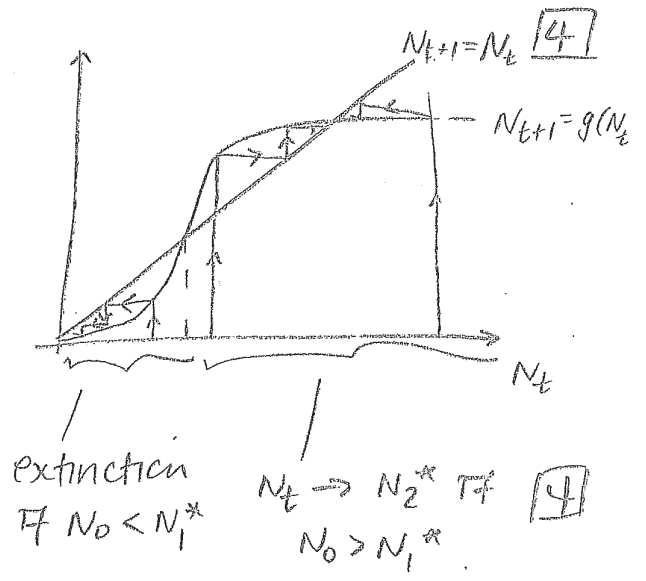 N_{t+1} = N_t [4]
N_{t+1} = g(N_t
N_t
extinction
if N_0 < N_1^*
N_t → N_2^* if [4]
N_0 > N_1^*.